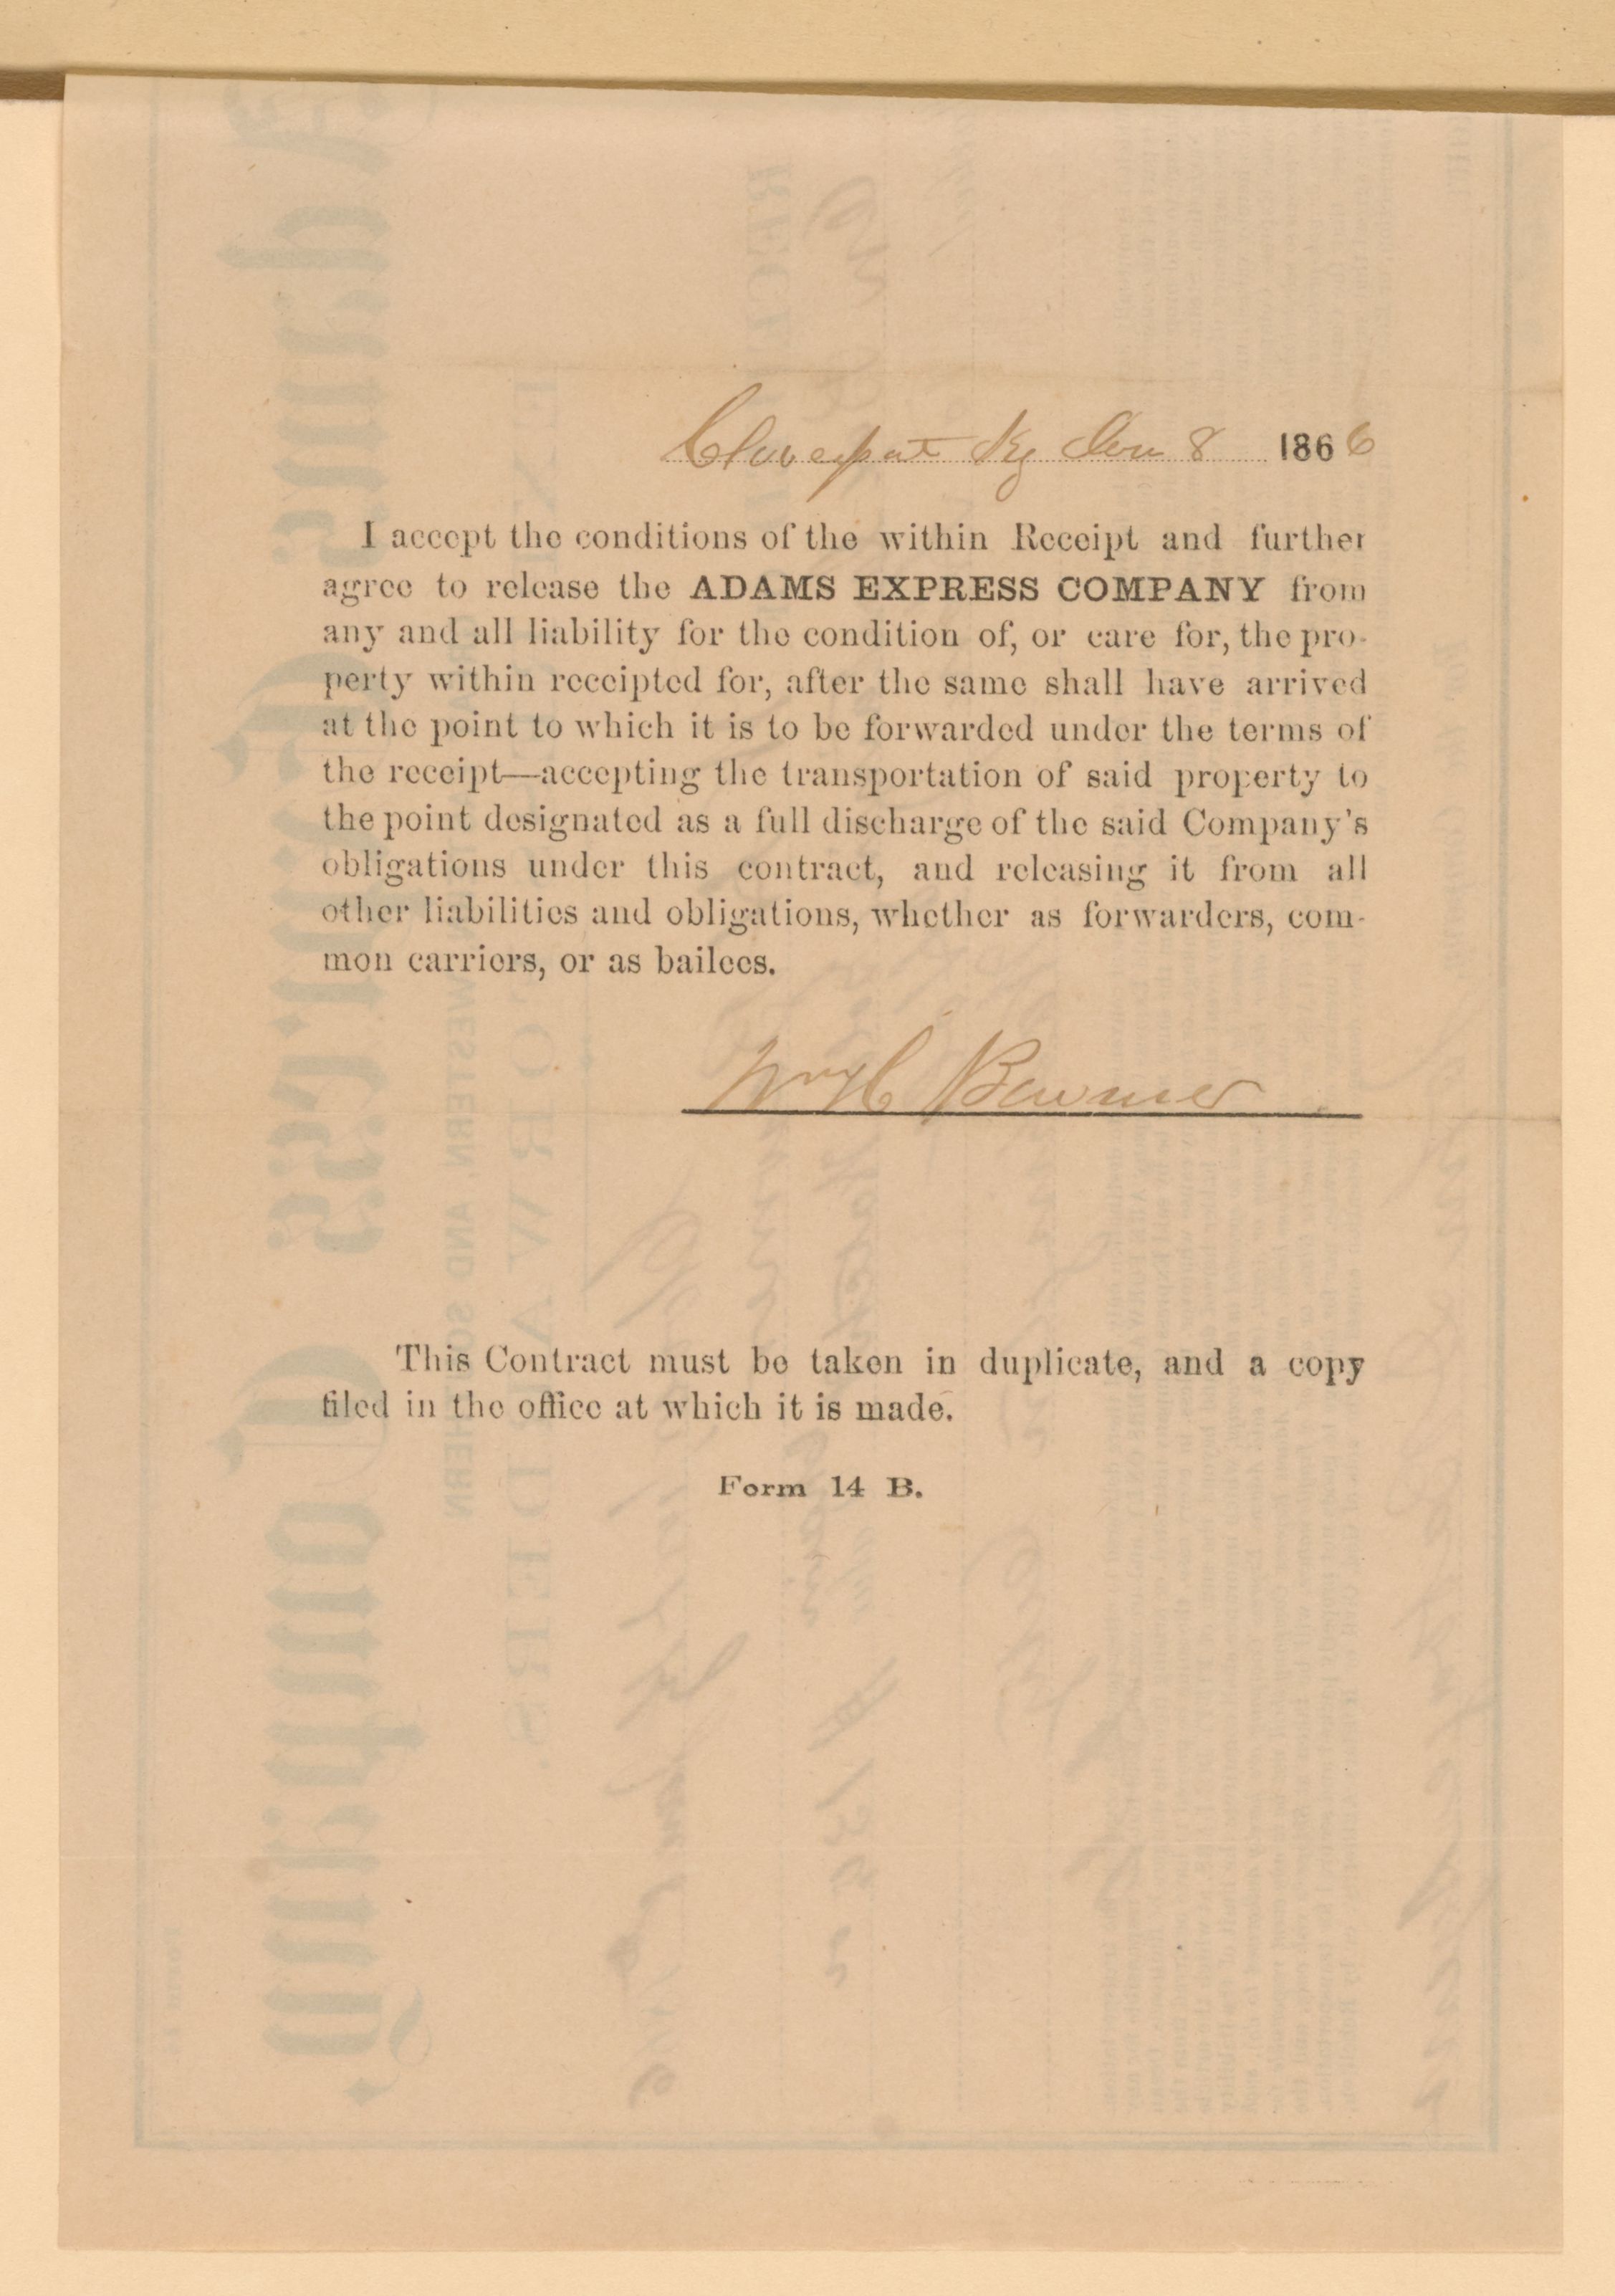 Cloverport Ky Jan 8 1866
I accept the conditions of the within Receipt and further
agree to release the ADAMS EXPRESS COMPANY from
any and all liability for the condition of, or care for, the pro-
perty within receipted for, after the same shall have arrived
at the point to which it is to be forwarded under the terms of
the receipt—accepting the transportation of said property to
the point designated as a full discharge of the said Company's
obligations under this contract, and releasing it from all
other liabilities and obligations, whether as forwarders, com-
mon carriers, or as bailees.
Wm H Bowmer
This Contract must be taken in duplicate, and a copy
filed in the office at which it is made.
Form 14 B.